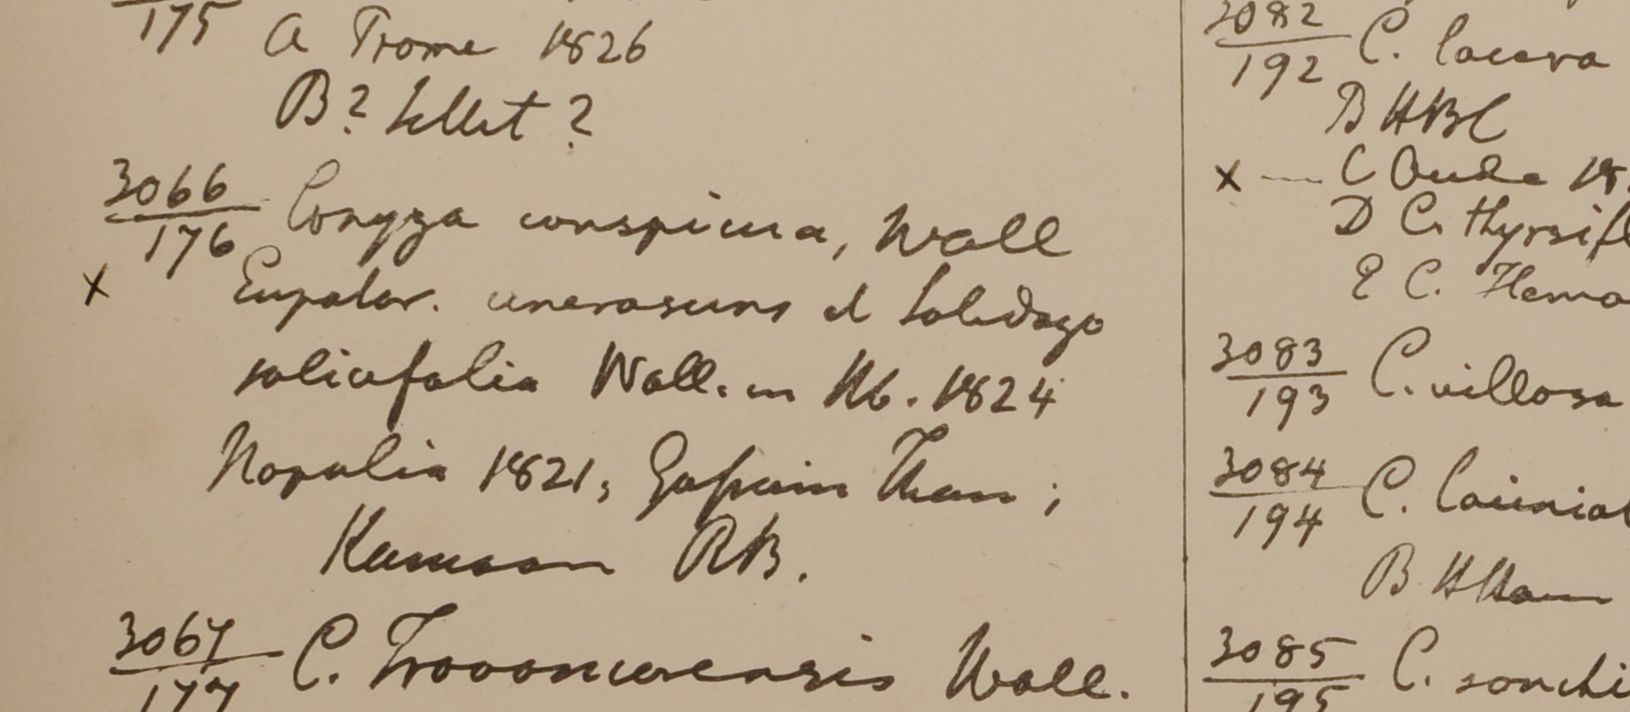 175 A Prome 1826
B? Sillet?
3066
176 Conyza conspicua, Wall
x Eupator. cinerascens et Solidago
salicifolia Wall. in Hb. 1824
Napalia 1821, Gossain Than;
Kamaon RB.
3067
177 C. Wall.
3082
192 C. lacera
B HBC
x — C Oude 18
D C. thyrsifl
E C.
3083
193 C. villosa
3084
194 C. laciniat
B HHam
3085
195 C. sonchi